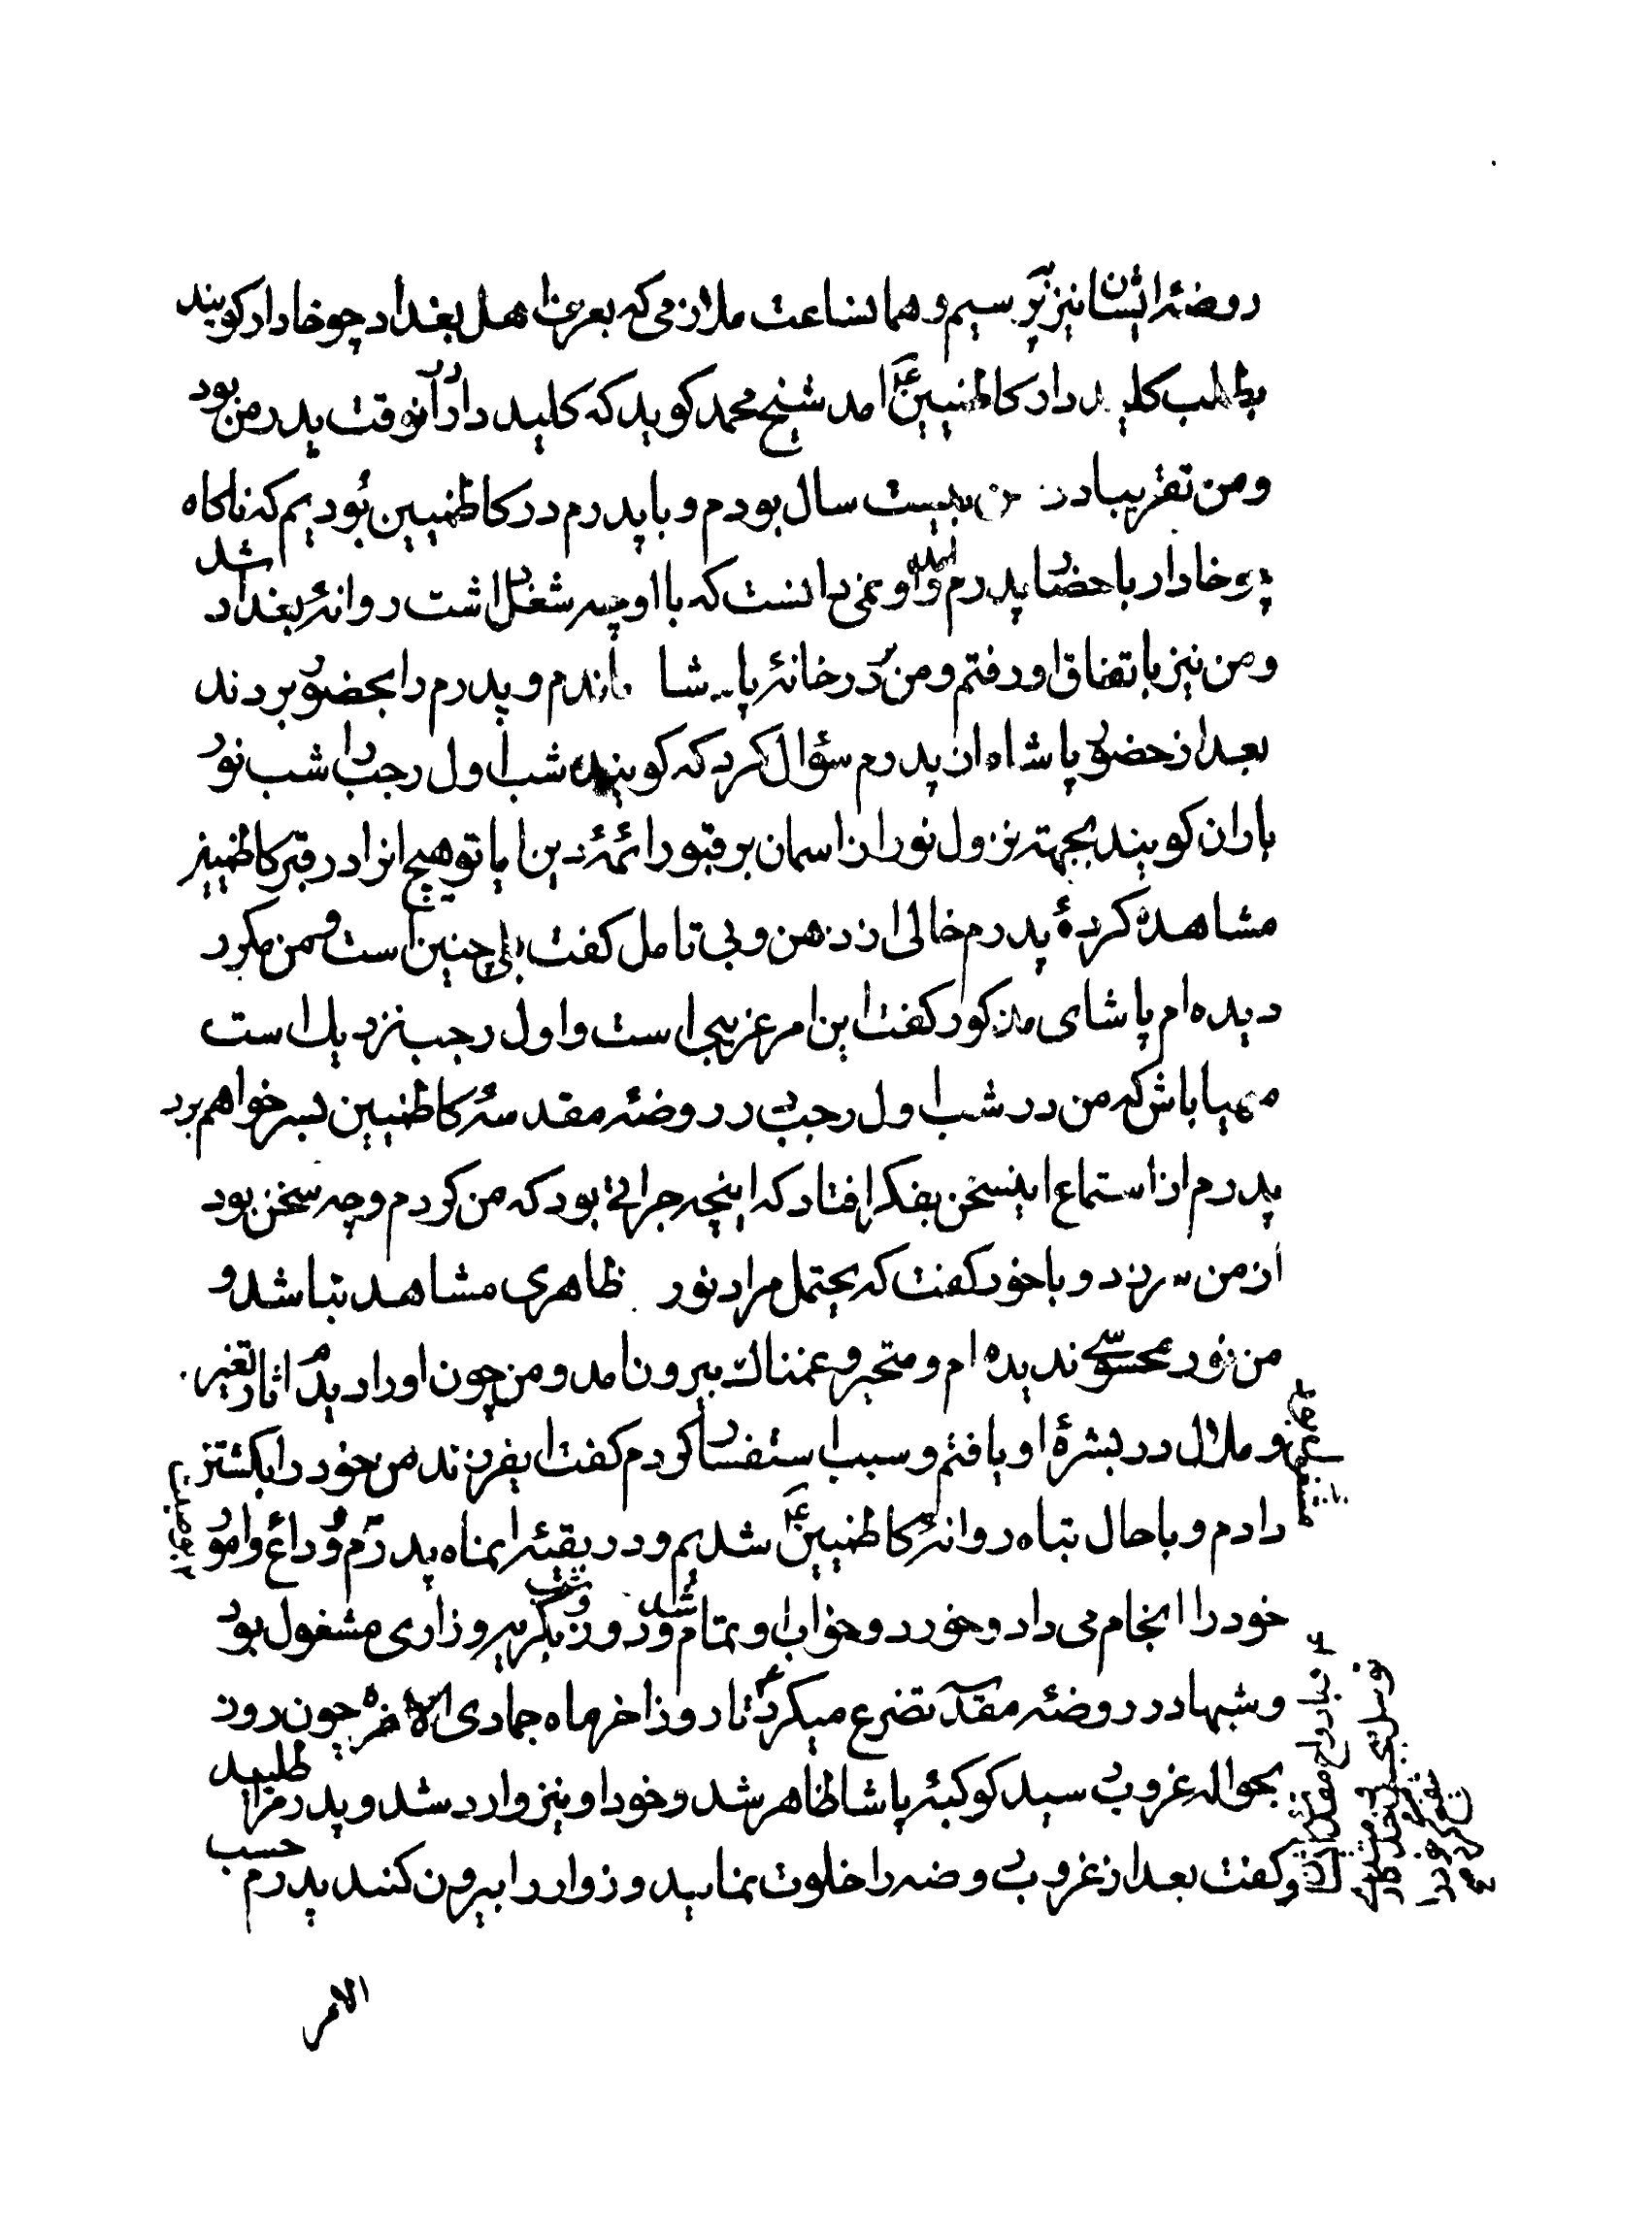 روضهٔ ایشان نیز برسیم و همانساعت ملازمی که بعرف اهل بغداد چوخادار کویند
بطلب کلیددار کاظمیین ع امد شیخ محمد کوید که کلیددار درآنوقت پدر من بود
و من تقریبا در سن بیست سال بودم و با پدرم در کاظمیین بودیم که ناکاه
چوخادار باحضار پدرم آمد و او نمی دانست که با او چه شغل داشت روانهٔ بغداد شد
و من نیز باتفاق او رفتم و من در در خانهٔ پاشا ماندم و پدرم را بحضور بردند
بعد از حضور پاشاه از پدرم سؤال کرد که کویند شب اول رجب را شب نور
باران کویند بجهته نزول نور از اسمان بر قبور ائمهٔ دین ایا تو هیچ انرا در قبر کاظمیین
مشاهده کردهٔ پدرم خالی از ذهن و بی تامل کفت بلی چنین است و من مکرر
دیده ام پاشای مذکور کفت این امر غریبی است و اول رجب نزدیک است
مهیا باش که من در شب اول رجب در روضهٔ مقدسهٔ کاظمیین بسر خواهم برد
پدرم از استماع اینسخن بفکر افتاد که اینچه جراتی بود که من کردم و چه سخن بود
از من سر زد و با خود کفت که یحتمل مراد نور ظاهری مشاهد نباشد و
من نور محسوسی ندیده ام و متحیر و غمناک بیرون امد و من چون او را دیدم اثار تغیر
و ملال در بشرهٔ او یافتم و سبب استفسار کردم کفت ایفرزند من خود را بکشتن
دادم و با حال تباه روانهٔ کاظمیین ع شدیم و در بقیهٔ اینماه پدرم وداع و امور
خود را انجام می داد و خورد و خواب او تمام شد و روز و شب بکریه و زاری مشغول بود
و شبها در روضهٔ مقدسه تضرع میکرد تا روز اخر ماه جمادی الاخره چون روز
بحوالی غروب رسید کوکبهٔ پاشا ظاهر شد و خود او نیز وارد شد و پدر مرا طلبید
و کفت بعد از غروب روضه را خلوت نمایید و زوار را بیرون کنند پدرم حسب
الامر